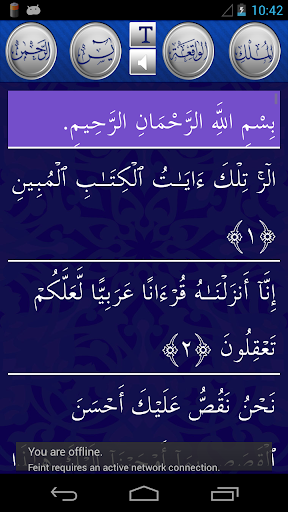 10:42
الرحمن
يس
T
الواقعة
الملك
بِسْمِ اللَّهِ الرَّحْمَانِ الرَّحِيمِ.
الٓرۚ تِلْكَ ءَايَـٰتُ ٱلْكِتَـٰبِ ٱلْمُبِينِ
﴿١﴾
إِنَّآ أَنزَلْنَـٰهُ قُرْءَٰنًا عَرَبِيًّا لَّعَلَّكُمْ
تَعْقِلُونَ ﴿٢﴾
نَحْنُ نَقُصُّ عَلَيْكَ أَحْسَنَ
You are offline.
Feint requires an active network connection.